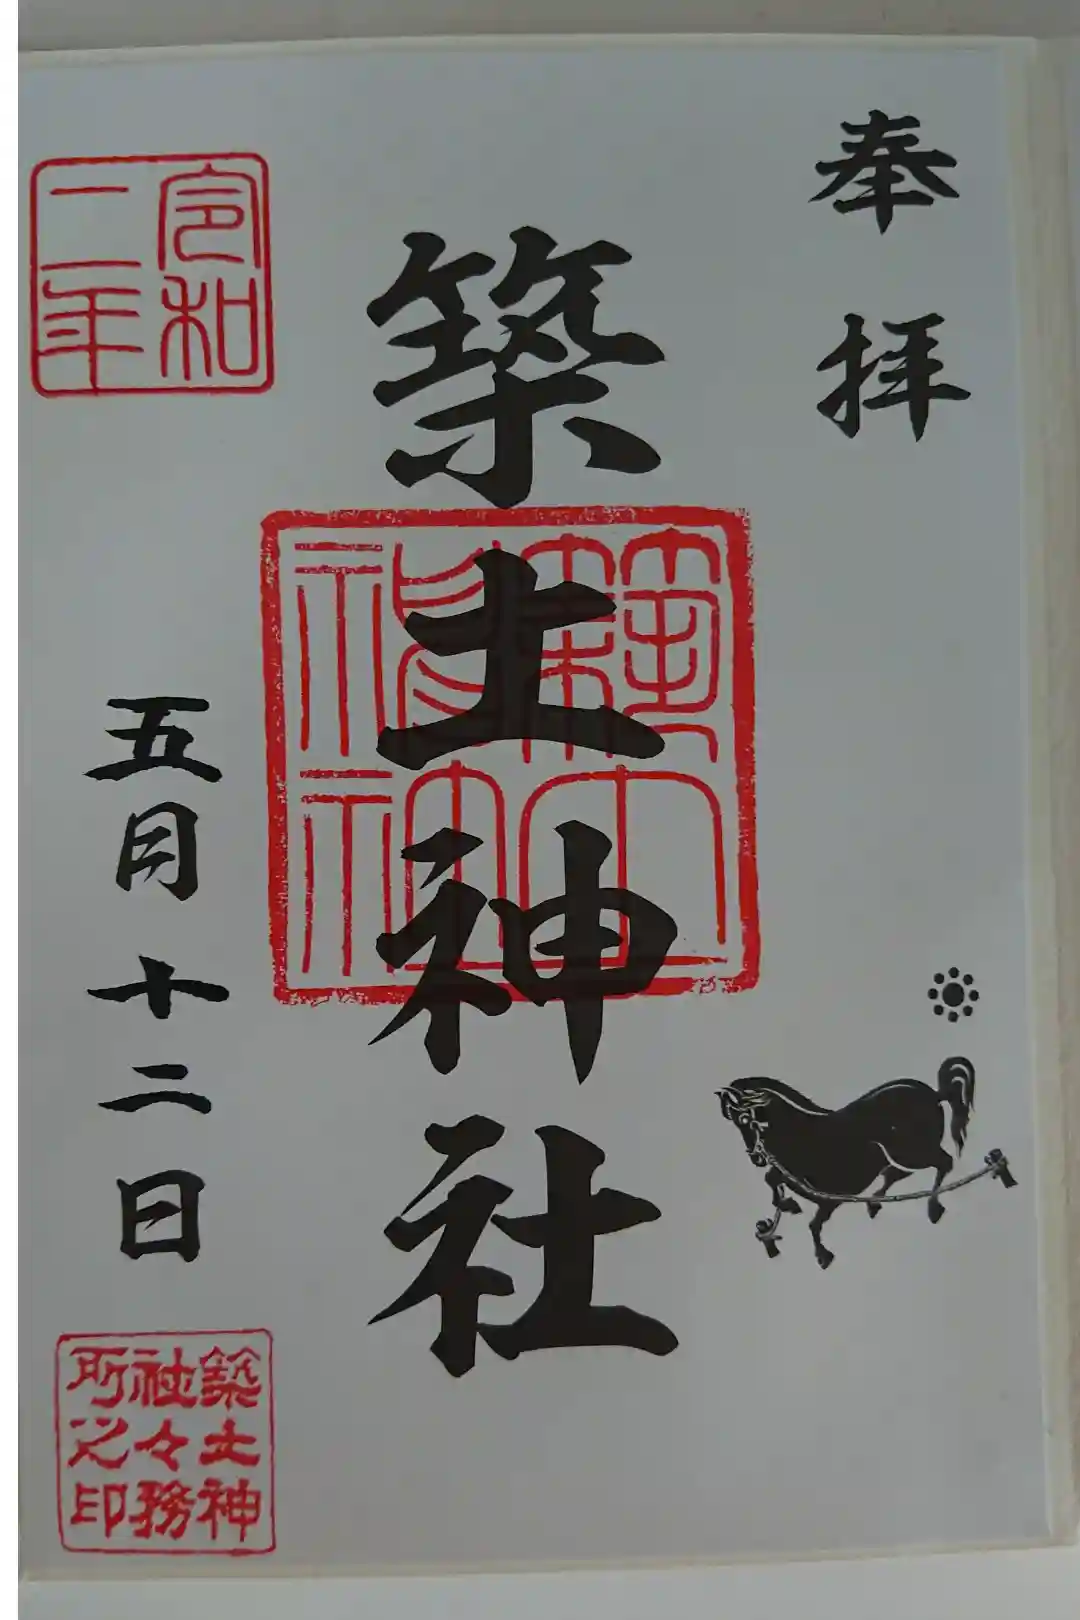 奉拝
築土神社
築土
神社
令和
二年
五月十二日
築土神
社々務
所之印